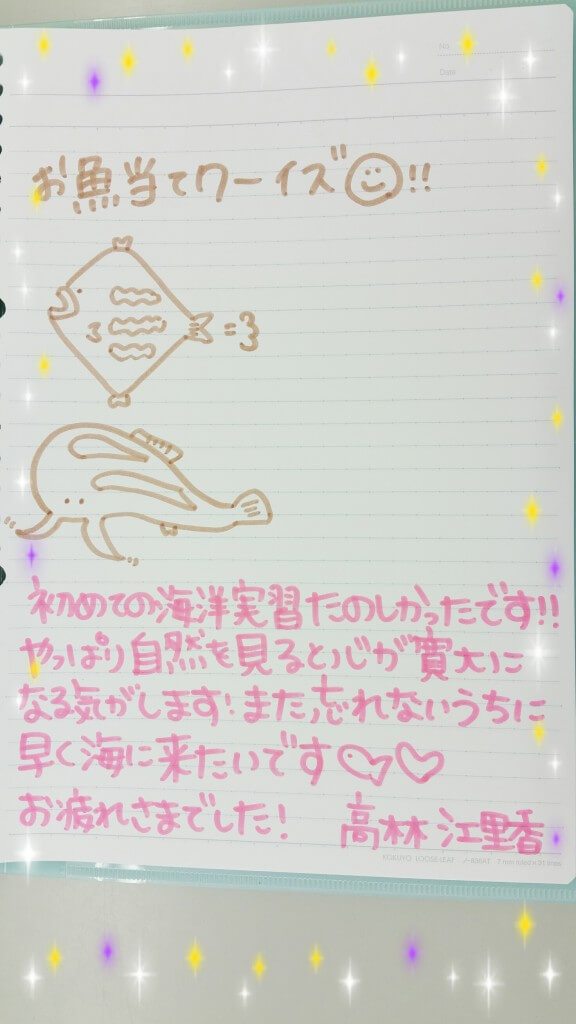 No.
Date
お魚当てワーイズ"!!
=3
初めての海洋実習たのしかったです!!
やっぱり自然を見ると心が寛大に
なる気がします!また忘れないうちに
早く海に来たいです♡
お疲れさまでした! 高林 江里香
KOKUYO LOOSE-LEAF ノ-836AT 7 mm ruled × 31 lines